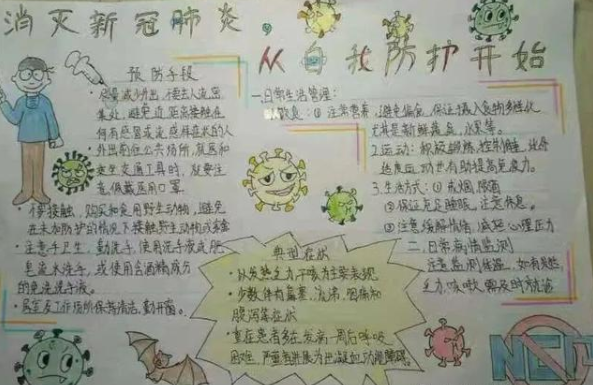 消灭新冠肺炎，
从自我防护开始
预防手段
• 尽量减少外出，不要去人流密
集处，避免近距离接触任
何有感冒或流感样症状的人
• 外出前往公共场所，就医和
乘坐交通工具时，应要注
意，佩戴医用口罩。
• 不要接触，购买和食用野生动物，避免
在未加防护的情况下接触野生动物或家禽
• 注意手卫生，勤洗手，使用洗手液或肥
皂流水洗手，或使用含酒精成分
的免洗洗手液。
• 居室及工作场所保持清洁，勤开窗。
一.日常生活管理：
1.饮食：① 注意营养，避免偏食，保证摄入食物多样化
尤其是新鲜蔬菜、水果等。
2.运动：积极锻炼，控制体
适度运动也有助提高免疫力。
3.生活方式：① 戒烟、限酒
② 保证充足睡眠，注意休息。
③ 注意缓解情绪，减轻心理压力
二.日常病情监测
注意监测体温，如有发热，
乏力，咳嗽，需及时就诊
典型症状
• 以发热乏力、干咳为主要表现
• 少数伴有鼻塞，流涕，咽痛和
腹泻等症状
• 重症患者多在发病一周后呼吸
困难，严重者进展为出凝血功能障碍。